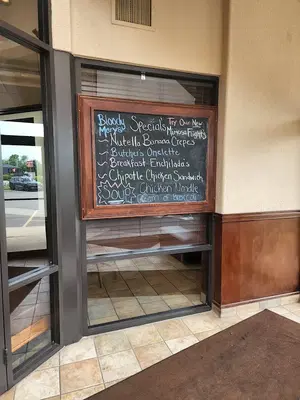 Bloody Mary's
Specials
Try Our New
Mimosa Flights
~ Nutella Banana Crepes
~ Butcher's Omelette
~ Breakfast Enchilada's
~ Chipotle Chicken Sandwich
Soups Chicken Noodle
Cream of Broccoli